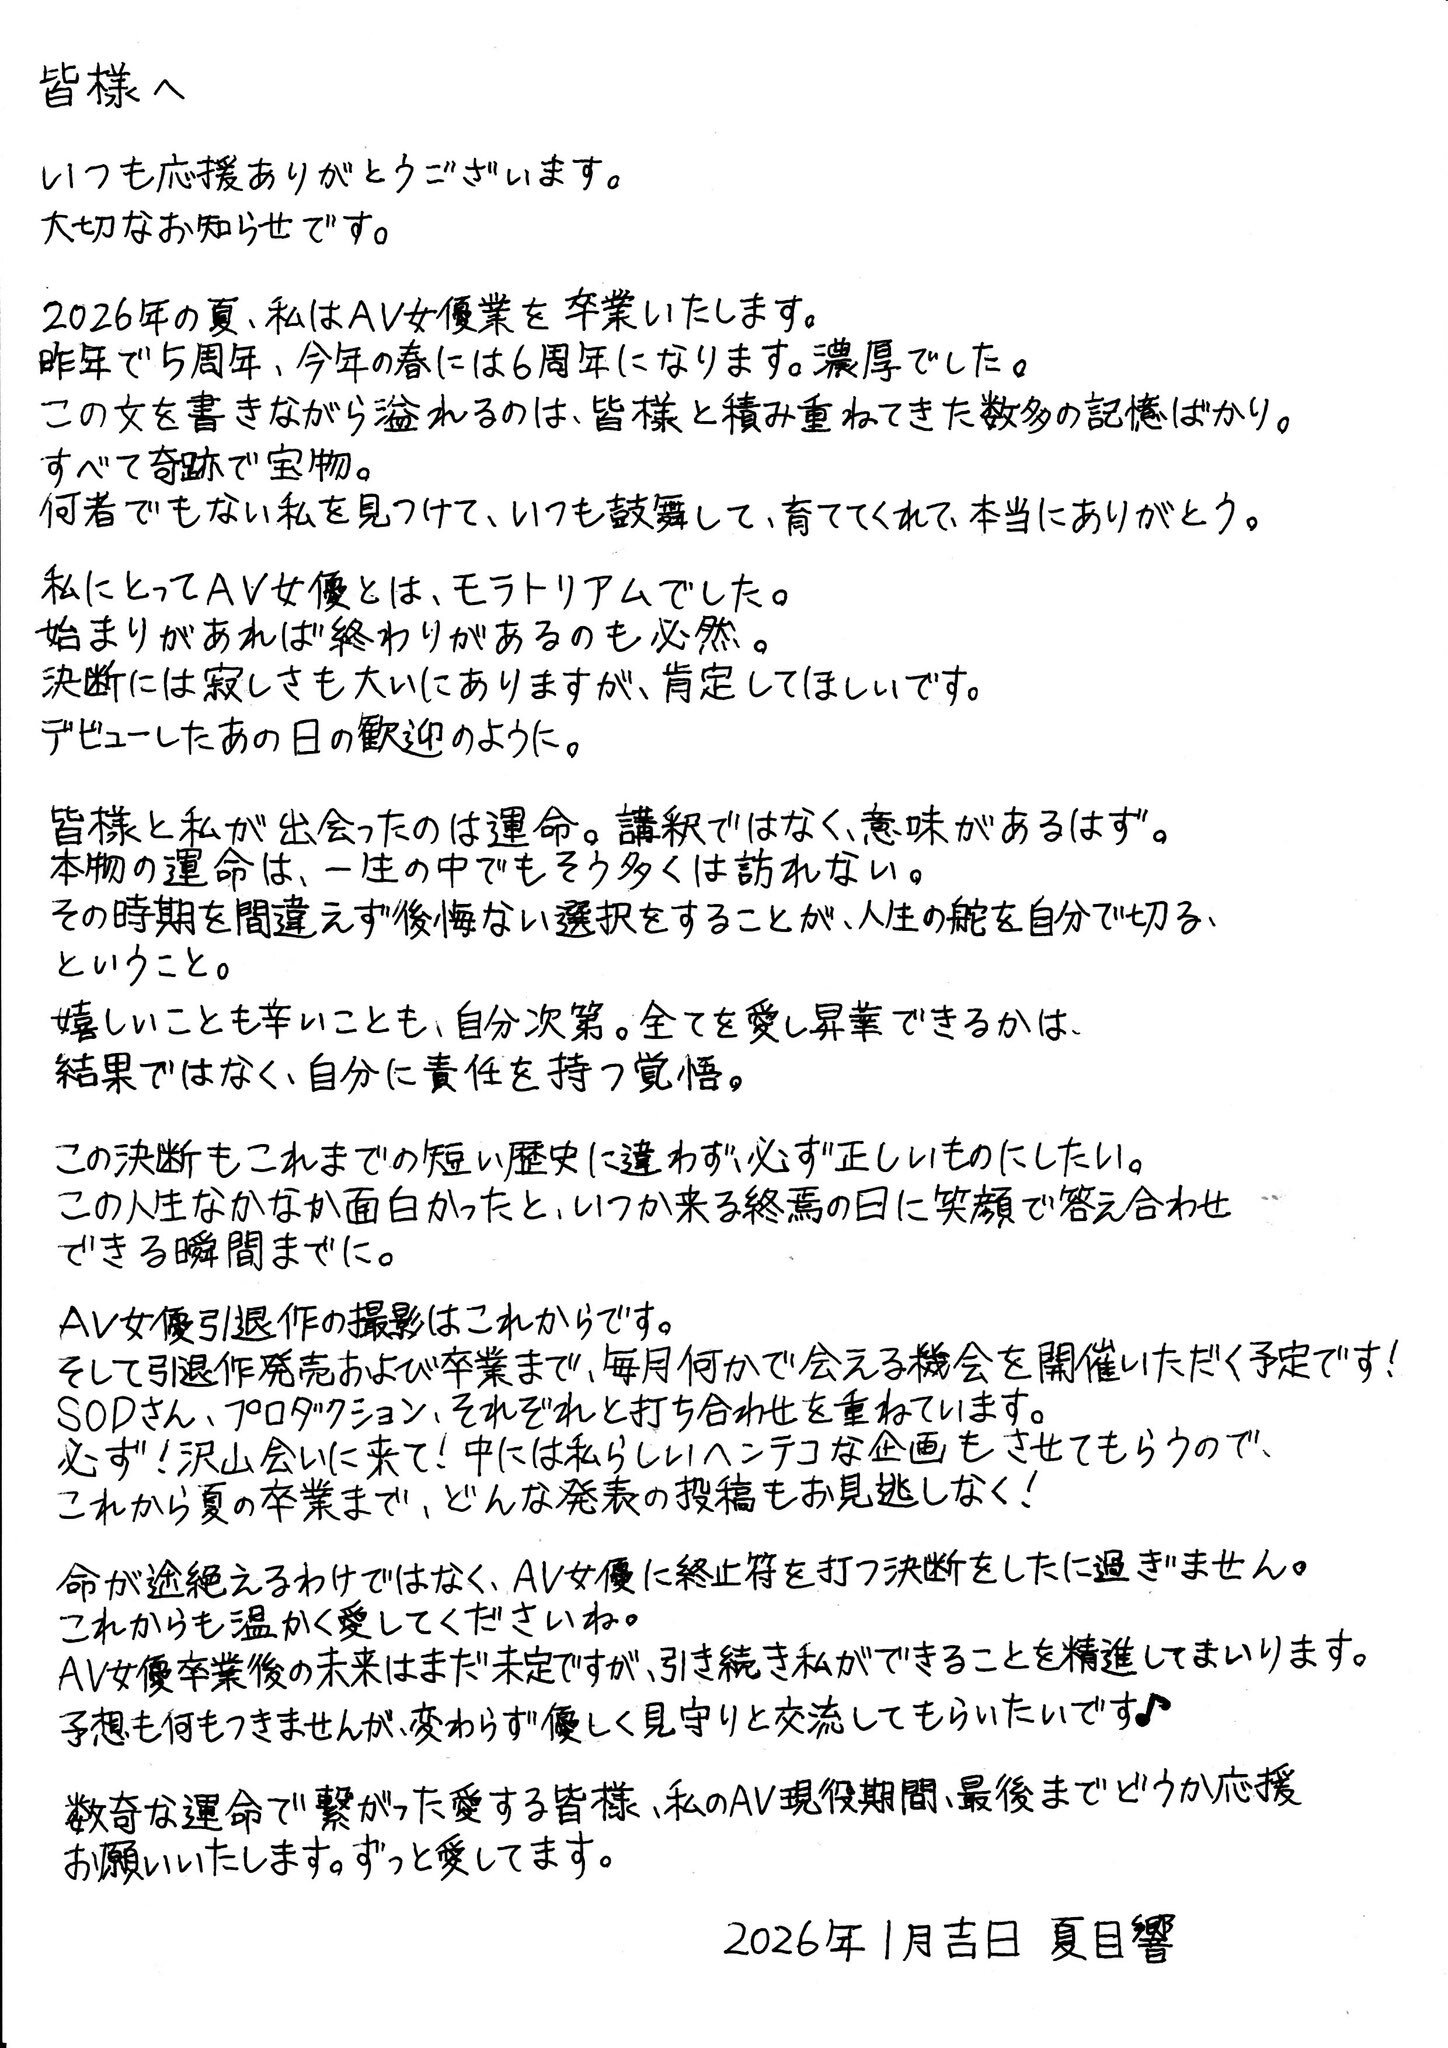 皆様へ
いつも応援ありがとうございます。
大切なお知らせです。
2026年の夏、私はAV女優業を卒業いたします。
昨年で5周年、今年の春には6周年になります。濃厚でした。
この文を書きながら溢れるのは、皆様と積み重ねてきた数多の記憶ばかり。
すべて奇跡で宝物。
何者でもない私を見つけて、いつも鼓舞して、育ててくれて、本当にありがとう。
私にとってAV女優とは、モラトリアムでした。
始まりがあれば終わりがあるのも必然。
決断には寂しさも大いにありますが、肯定してほしいです。
デビューしたあの日の歓迎のように。
皆様と私が出会ったのは運命。講釈ではなく、意味があるはず。
本物の運命は、一生の中でもそう多くは訪れない。
その時期を間違えず後悔ない選択をすることが、人生の舵を自分で切る、
ということ。
嬉しいことも辛いことも、自分次第。全てを愛し昇華できるかは、
結果ではなく、自分に責任を持つ覚悟。
この決断もこれまでの短い歴史に違わず、必ず正しいものにしたい。
この人生なかなか面白かったと、いつか来る終焉の日に笑顔で答え合わせ
できる瞬間までに。
AV女優引退作の撮影はこれからです。
そして引退作発売および卒業まで、毎月何かで会える機会を開催いただく予定です!
SODさん、プロダクション、それぞれと打ち合わせを重ねています。
必ず!沢山会いに来て!中には私らしいヘンテコな企画もさせてもらうので、
これから夏の卒業まで、どんな発表の投稿もお見逃しなく!
命が途絶えるわけではなく、AV女優に終止符を打つ決断をしたに過ぎません。
これからも温かく愛してくださいね。
AV女優卒業後の未来はまだ未定ですが、引き続き私ができることを精進してまいります。
予想も何もつきませんが、変わらず優しく見守りと交流してもらいたいです♪
数奇な運命で繋がった愛する皆様、私のAV現役期間、最後までどうか応援
お願いいたします。ずっと愛してます。
2026年1月吉日 夏目響